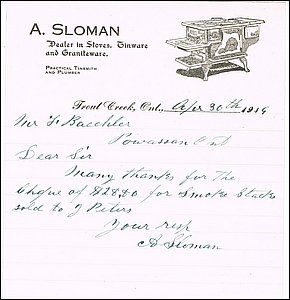 A. SLOMAN
Dealer in Stoves, Tinware
and Graniteware.
PRACTICAL TINSMITH
AND PLUMBER
Trout Creek, Ont., Apr 30th 1914
Mr F Baechler
Powassan Ont
Dear Sir
Many thanks for the
Cheque of $28.80 for Smoke Stacks
sold to J Peters
Your resp
A Sloman